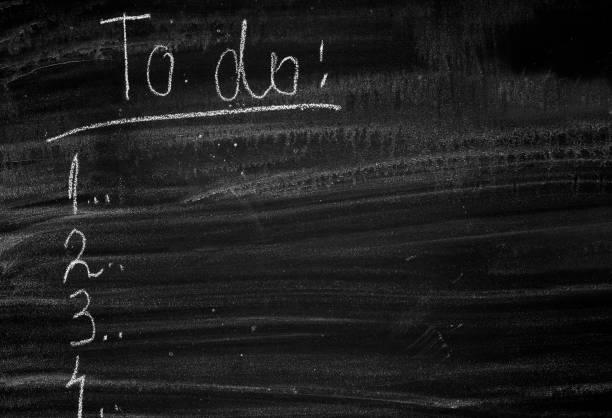 To do:
1...
2...
3...
4...